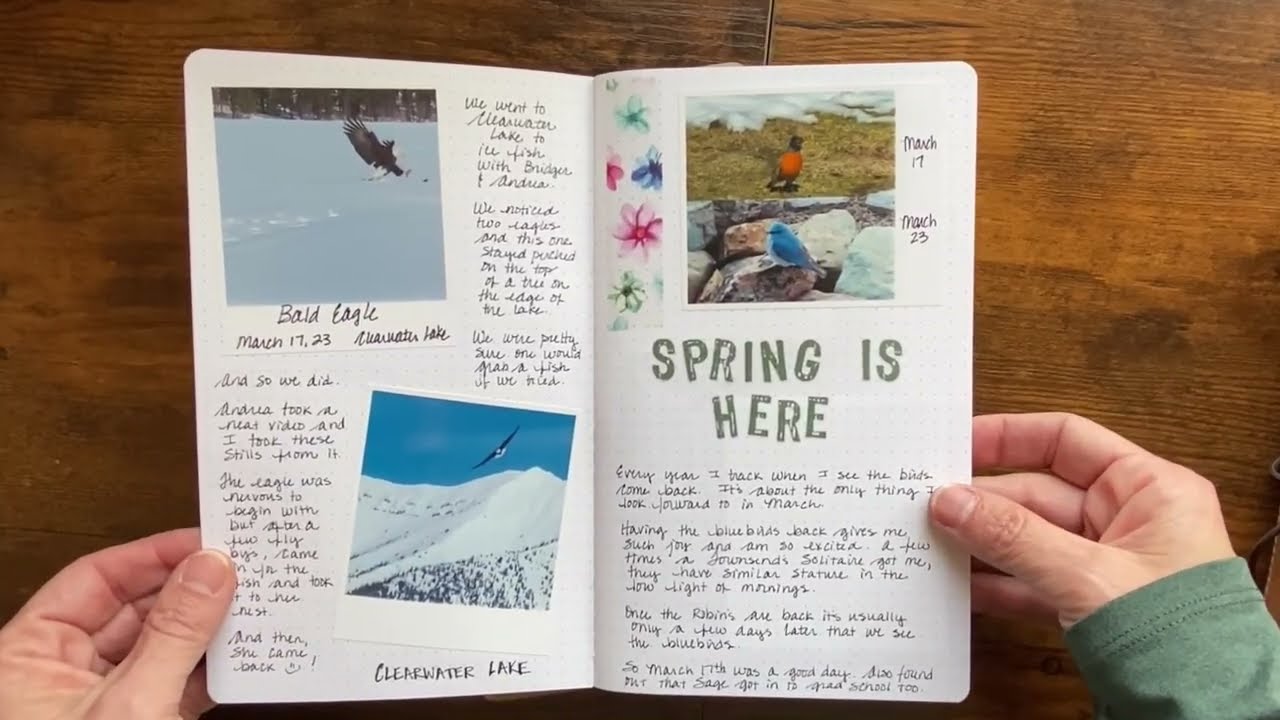 Bald Eagle
March 17, 23 Clearwater Lake
We went to
Clearwater
Lake to
ice fish
with Bridger
& Andrea.
We noticed
two eagles
and this one
stayed perched
on the top
of a tree on
the edge of
the lake.
We were pretty
sure one would
grab a fish
if we tried.
And so we did.
Andrea took a
neat video and
I took these
stills from it.
The eagle was
nervous to
begin with
but after a
few fly
bys, came
in for the
fish and took
it to her
nest.
And then,
she came
back !
CLEARWATER LAKE
March
17
March
23
SPRING IS
HERE
Every year I track when I see the birds
come back. It's about the only thing I
look forward to in March.
Having the bluebirds back gives me
such joy and am so excited. A few
times a Townsend's Solitaire got me,
they have similar stature in the
low light of mornings.
Once the Robin's are back it's usually
only a few days later that we see
the bluebirds.
So March 17th was a good day. Also found
out that Sage got in to grad school too.